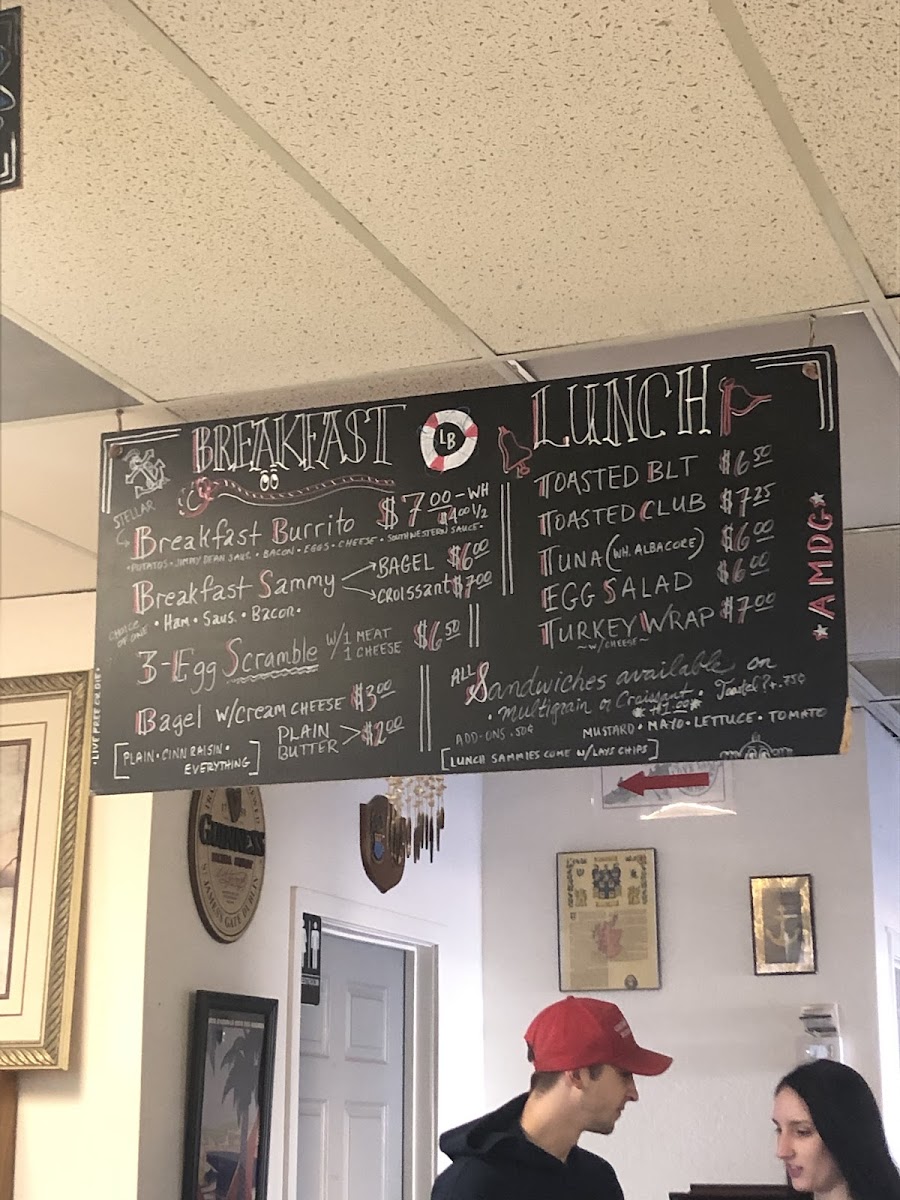 BREAKFAST
STELLAR
Breakfast Burrito $7.00 - WH
$4.00 1/2
• POTATOS • JIMMY DEAN SAUS. • BACON • EGGS • CHEESE • SOUTHWESTERN SAUCE •
Breakfast Sammy BAGEL $6.00
CROISSANT $7.00
CHOICE OF ONE
• HAM • SAUS. BACON •
3-Egg Scramble W/1 MEAT
1 CHEESE $6.50
Bagel W/CREAM CHEESE $3.00
PLAIN
BUTTER > $2.00
[PLAIN • CINN RAISIN •
EVERYTHING]
LIVE FREE OR DIE
LB
LUNCH
TOASTED BLT $6.50
TOASTED CLUB $7.25
TUNA (WH. ALBACORE) $6.00
EGG SALAD $6.00
TURKEY WRAP $7.00
~W/CHEESE~
*AMDG*
ALL Sandwiches available on
• multigrain or Croissant • Toasted? + .75¢
*+1.00*
ADD-ONS .50¢ MUSTARD • MAYO • LETTUCE • TOMATO
[LUNCH SAMMIES COME W/LAYS CHIPS]
GUINNESS
ST. JAMES'S GATE DUBLIN